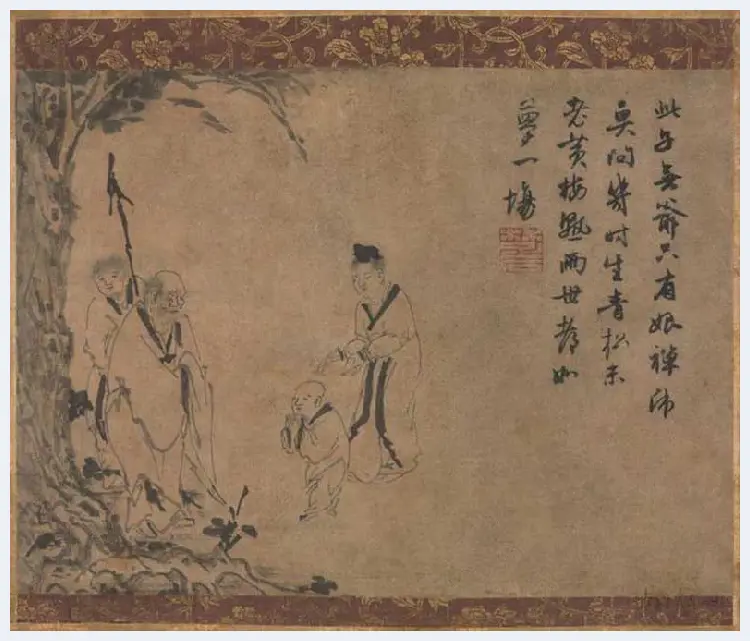 此子無爺只有娘禪師
莫問幾時生青松未
老黄梅熟兩世都如
夢一場